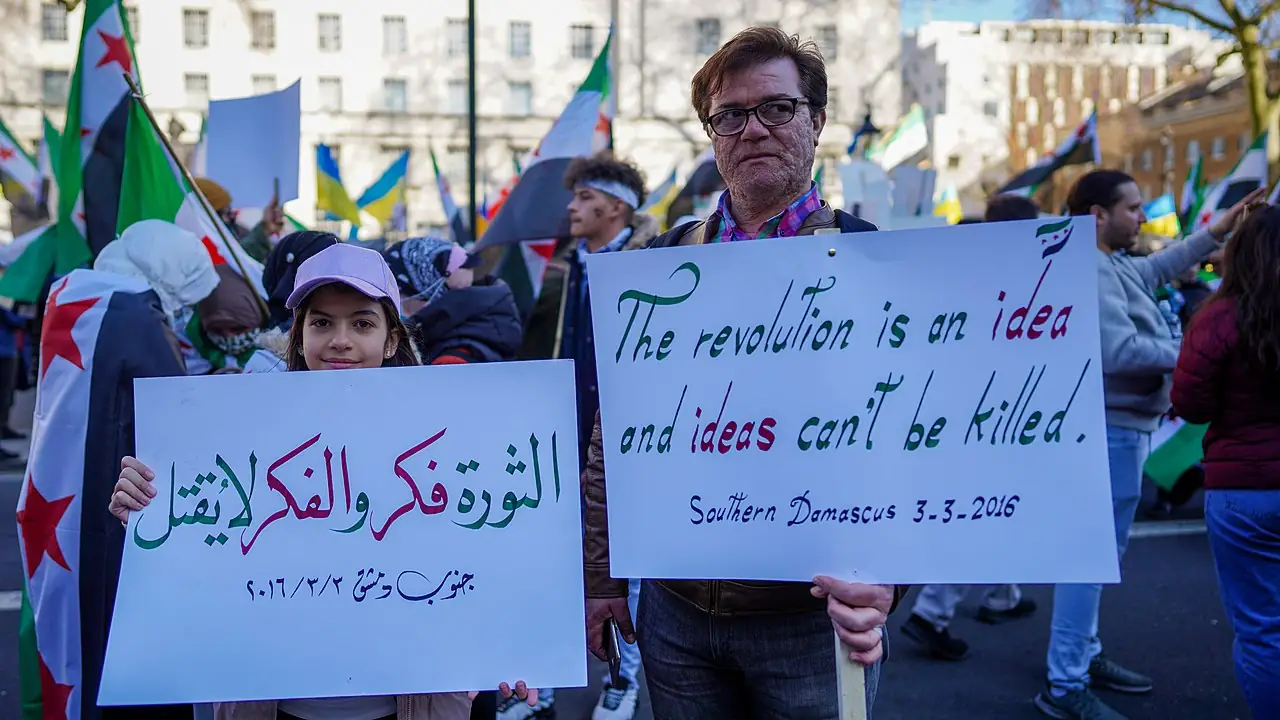 الثورة فكر والفكر لا يُقتل
جنوب دمشق ٢٠١٦/٣/٣
The revolution is an idea
and ideas can't be killed.
Southern Damascus 3-3-2016